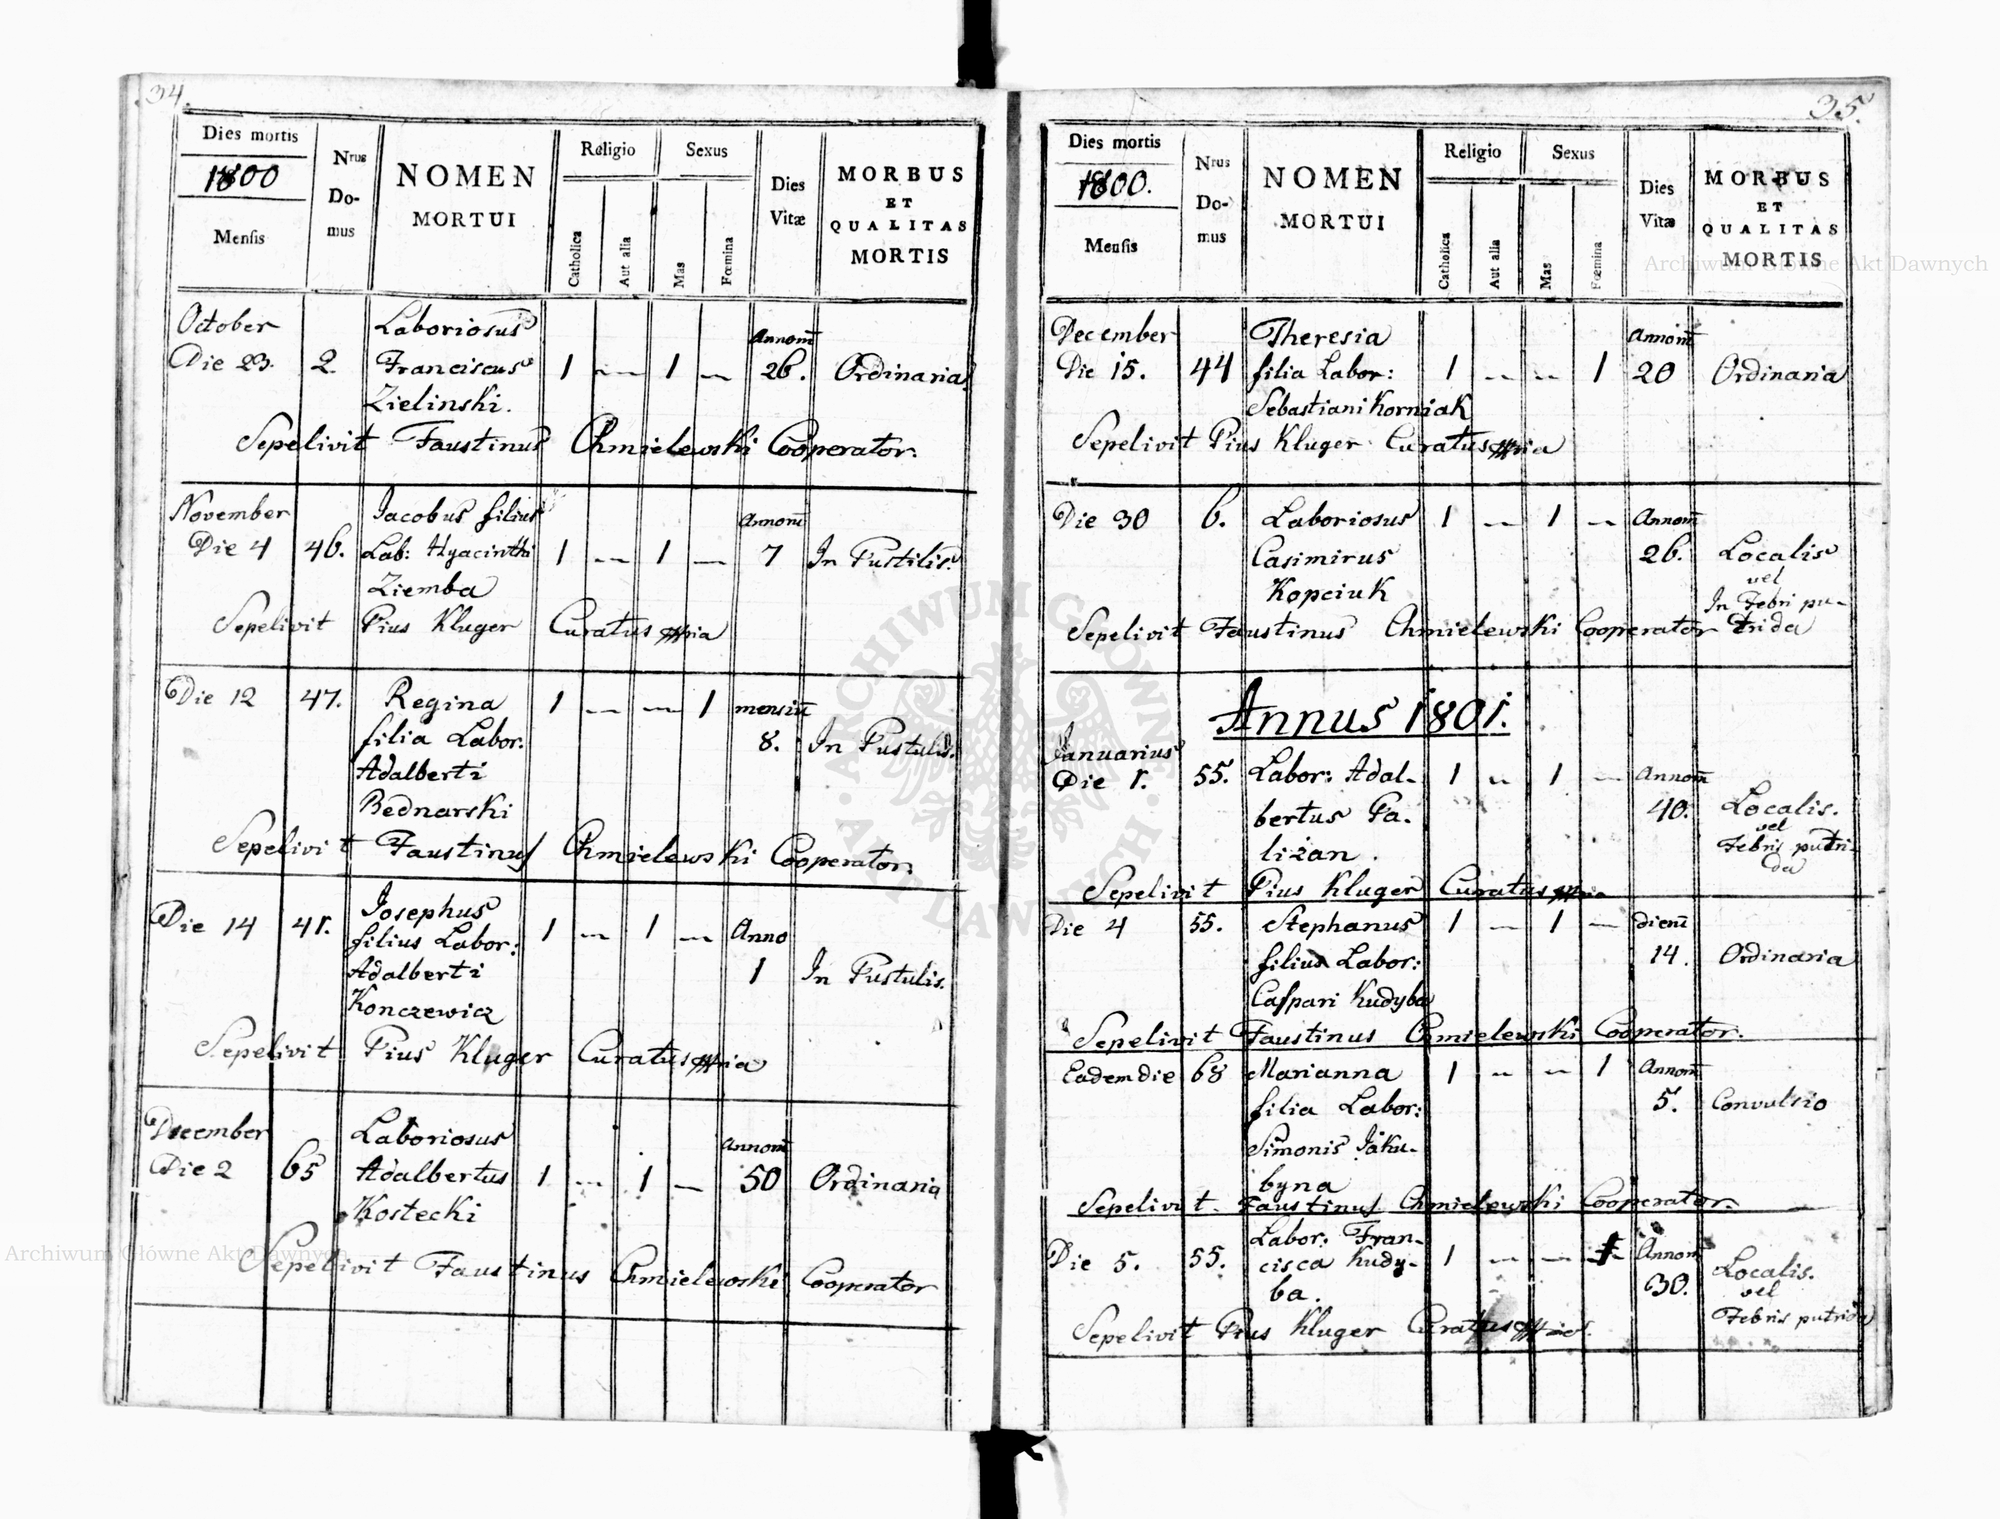 34.
Dies mortis
1800
Mensis
Nrus
Do-
mus
NOMEN
MORTUI
Religio
Catholica
Aut alia
Sexus
Mas
Fœmina
Dies
Vitæ
MORBUS
ET
QUALITAS
MORTIS
October Laboriosus Annom̄
Die 23. 2. Franciscus 1 — 1 — 26. Ordinaria
Zielinski.
Sepelivit Faustinus Chmielewski Cooperator.
November Jacobus filius Annom̄
Die 4 46. Lab: Hyacinthi 1 — 1 — 7 In Pustilis.
Ziemba
Sepelivit Pius Kluger Curatus mpria
Die 12 47. Regina 1 — — 1 mensiū
filia Labor. 8. In Pustulis.
Adalberti
Bednarski
Sepelivit Faustinus Chmielewski Cooperator.
Die 14 41. Josephus 1 — 1 — Anno
filius Labor:
Adalberti 1 In Pustulis.
Konczewicz
Sepelivit Pius Kluger Curatus mpria
December Laboriosus Annom̄
Die 2 65 Adalbertus 1 — 1 — 50 Ordinaria
Kostecki
Sepelivit Faustinus Chmielewski Cooperator
35.
Dies mortis
1800.
Mensis
Nrus
Do-
mus
NOMEN
MORTUI
Religio
Catholica
Aut alia
Sexus
Mas
Fœmina
Dies
Vitæ
MORBUS
ET
QUALITAS
MORTIS
December Theresia Annom̄
Die 15. 44 filia Labor: 1 — — 1 20 Ordinaria
Sebastiani Korniak
Sepelivit Pius Kluger Curatus mpria
Die 30 6. Laboriosus 1 — 1 — Annom̄
Casimirus 26. Localis
vel
Kopciuk In Febri pu-
Sepelivit Faustinus Chmielewski Cooperator trida
Annus 1801.
Januarius
Die 1. 55. Labor: Adal- 1 — 1 — Annom̄
bertus Pa- 40. Localis.
vel
lizan. Febris putri-
da
Sepelivit Pius Kluger Curatus mpria
Die 4 55. Stephanus 1 — 1 — dierū
filius Labor: 14. Ordinaria
Caspari Kudyba
Sepelivit Faustinus Chmielewski Cooperator.
Eadem die 68 Marianna 1 — — 1 Annom̄
filia Labor: 5. Convulsio
Simonis Jaku-
byna
Sepelivit Faustinus Chmielewski Cooperator.
Labor: Fran-
Die 5. 55. cisca Kudy- 1 — — 1 Annom̄
ba. 30. Localis.
vel
Febris putrida
Sepelivit Pius Kluger Curatus
ARCHIWUM GŁÓWNE AKT DAWNYCH
Archiwum Główne Akt Dawnych
Archiwum Główne Akt Dawnych